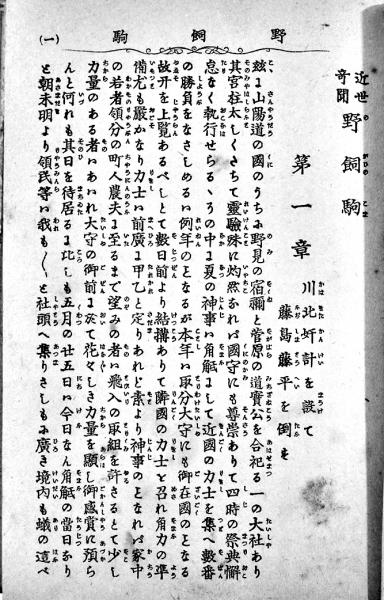 野飼駒
(一)
近世奇聞 野飼駒
第一章
川北奸計を設て
藤島藤平を倒す
茲に山陽道の國のうちに野見の宿禰と菅原の道實公を合祀る一の大社あり
其宮柱太しくさちて靈驗殊に灼然なれバ國守にも尊崇ありて四時の祭典懈
怠なく執行せらるゝその中に夏の神事に角觝まして近國の力士を集へ數番
の勝負をなさしめるハ例年のことなるが本年ハ取分大守にも御在國のことなる
故開を上覽あるべしとて數日前より結搆ありて隣國の力士と召れ角力の準
備尤も嚴かなり力士ハ前廣に甲乙と定りあれど素より神事のことなれバ家中
の若者領分の町人農夫に至るまで望みの者ハ飛入の取組を許さるとて少し
力量のある者ハあハれ大守の御前に於て花々しき力量を顯し御感賞に預ら
んと何れも其日を待居るに比しも五月の廿五日ハ今日なん角觝の當日なり
と朝未明より領民等ハ我も〳〵と社頭へ集りさしもに廣き境内も蟻の這べ